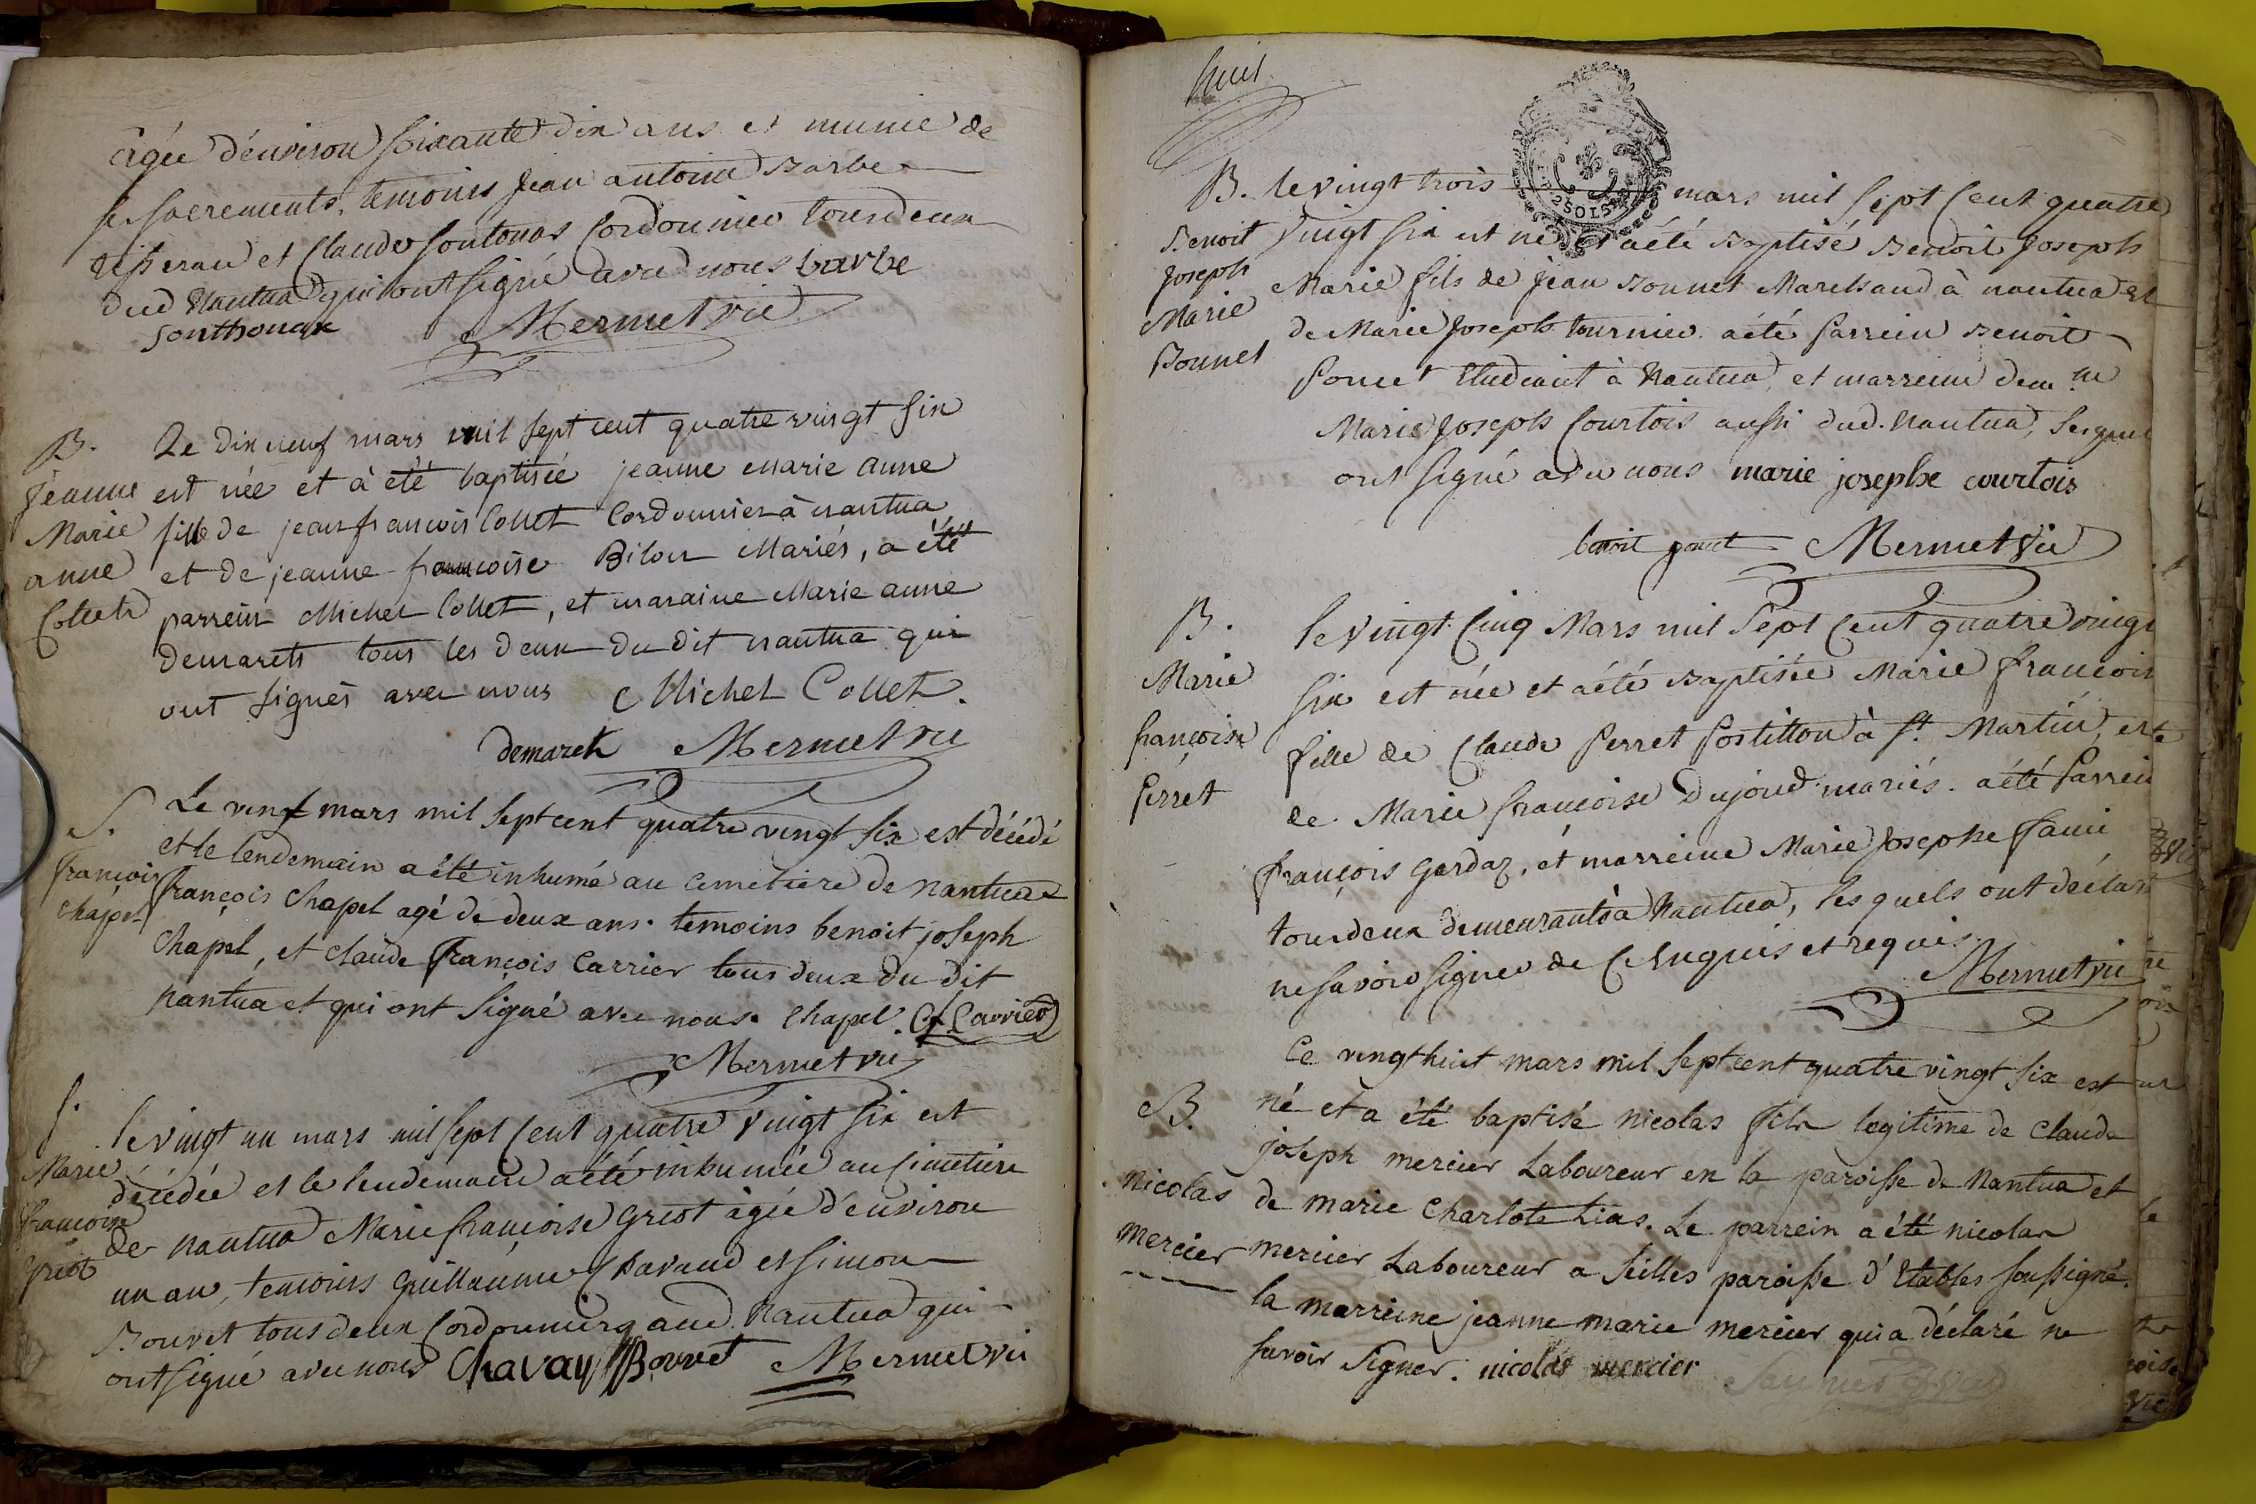 agée d'environ soixante dix ans et munie de
ses sacrements, temoins jean antoine Barbe
tisseran et Claude sontonax Cordonnier tous deux
dud Nantua qui ont signé avec nous barbe
sonthonax Mermet vic
B. Le dix neuf mars mil sept cent quatre vingt six
jeanne est née et à été baptisée jeanne Marie anne
Marie fille de jean francois Collet Cordonnier à nantua
anne et de jeanne francoise Mariés, a été
Collet parrein Michel Collet, et maraine Marie anne
demarets tous les deux du dit nantua qui
ont signés avec nous Michel Collet.
demarets Mermet vic
S. Le vingt mars mil sept cent quatre vingt six est décédé
et le lendemain a été inhumé au cemetiere de Nantua
francois françois Chapel agé de deux ans. temoins benoit joseph
chapel Chapel, et claude françois Carrier tous deux du dit
Nantua et qui ont Signé avec nous. Chapel. Cf Carrier
Mermet vic
S. le vingt un mars mil sept Cent quatre vingt six est
Marie décédée et le lendemain a été inhumée au cimetiere
françoise de nantua Marie françoise Griot agée d'environ
Griot un an, temoins Guillaume Chavand et simon
Bouvet tous deux Cordonniers aud. Nantua qui
ont signé avec nous Chavan Bouvet Mermet vic
huit
2 SOLS
B. le vingt trois mars mil sept Cent quatre
Benoit vingt six est né et a été Baptisé Benoit Joseph
Joseph Marie fils de jean Bonnet Marchand à nantua et
Marie de Marie Joseph tournier. a été parrein Benoit
Bonnet Poncet Etudiant à Nantua, et marreine dem.lle
Marie Joseph Courtois aussi dud. Nantua,
ont signé avec nous marie josephe courtois
benoit poncet Mermet vic
B. le vingt Cinq Mars mil Sept Cent quatre vingt
Marie six est née et a été Baptisée Marie francois
françoise fille de Claude Perret Postillon à st Martin, et
Perret de Marie françoise Dujoud mariés. a été Parrein
françois Gardaz, et marreine Marie Josephe
tous deux demeurants à Nantua, les quels ont déclar
ne savoir signer de Ce Enquis et requis.
Mermet vic
Ce vingt huit mars mil Sept cent quatre vingt six est
B. né et a été baptisé nicolas fils legitime de Claude
joseph mercier Laboureur en la paroisse de Nantua et
Nicolas de marie Charlote Lias. Le parrein a été nicolas
mercier mercier Laboureur a Seilles paroisse d'Etables soussigné.
la marreine jeanne marie mercier qui a déclaré ne
savoir Signer. nicolas mercier